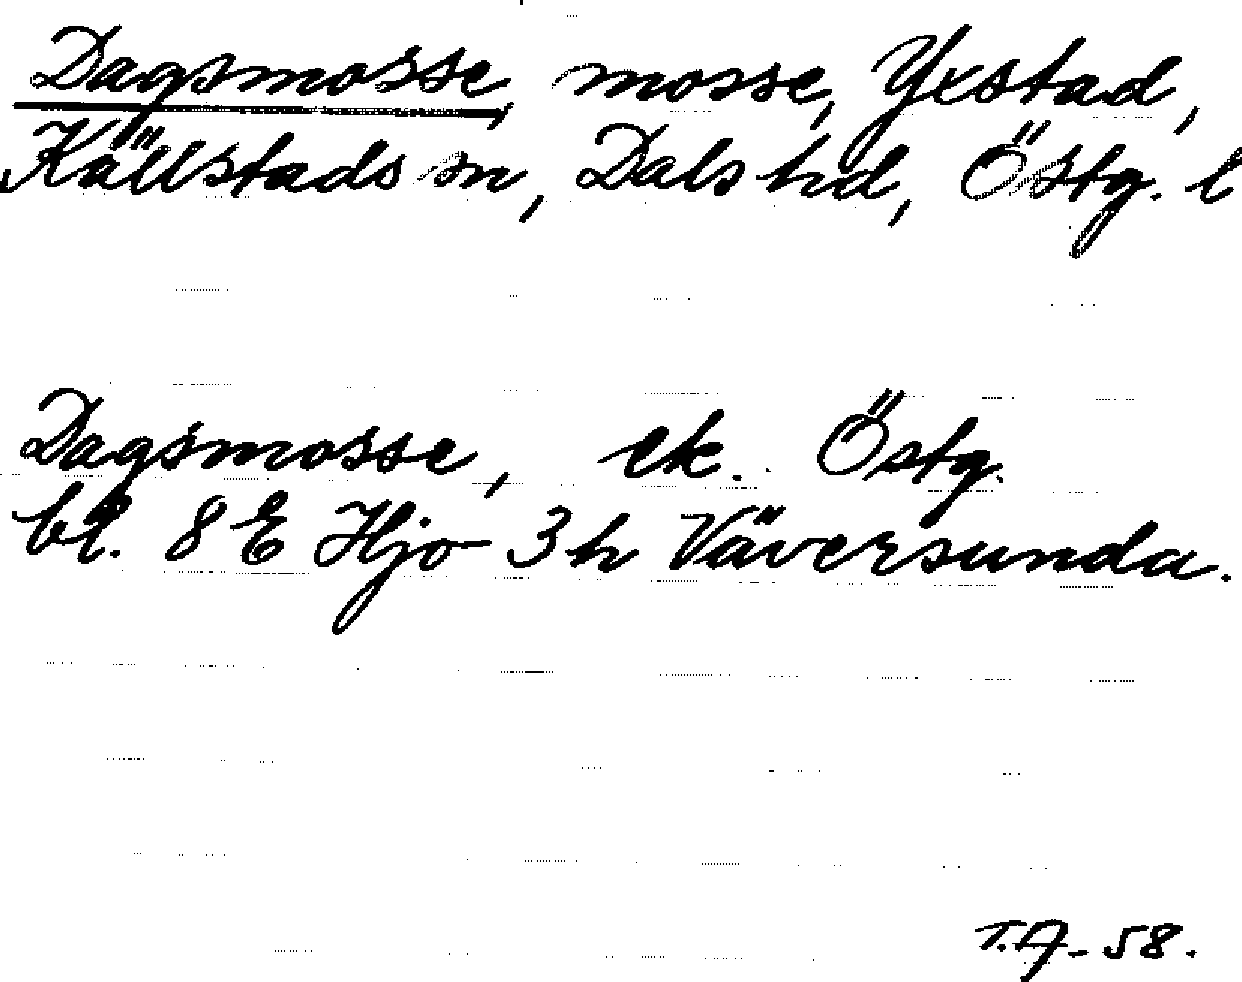 Dagsmosse, mosse, Yxstad,
Källstads sn, Dals hd, Östg. l
Dagsmosse, ek. Östg.
bl. 8 E Hjo 3 h Väversunda.
T.A-58.